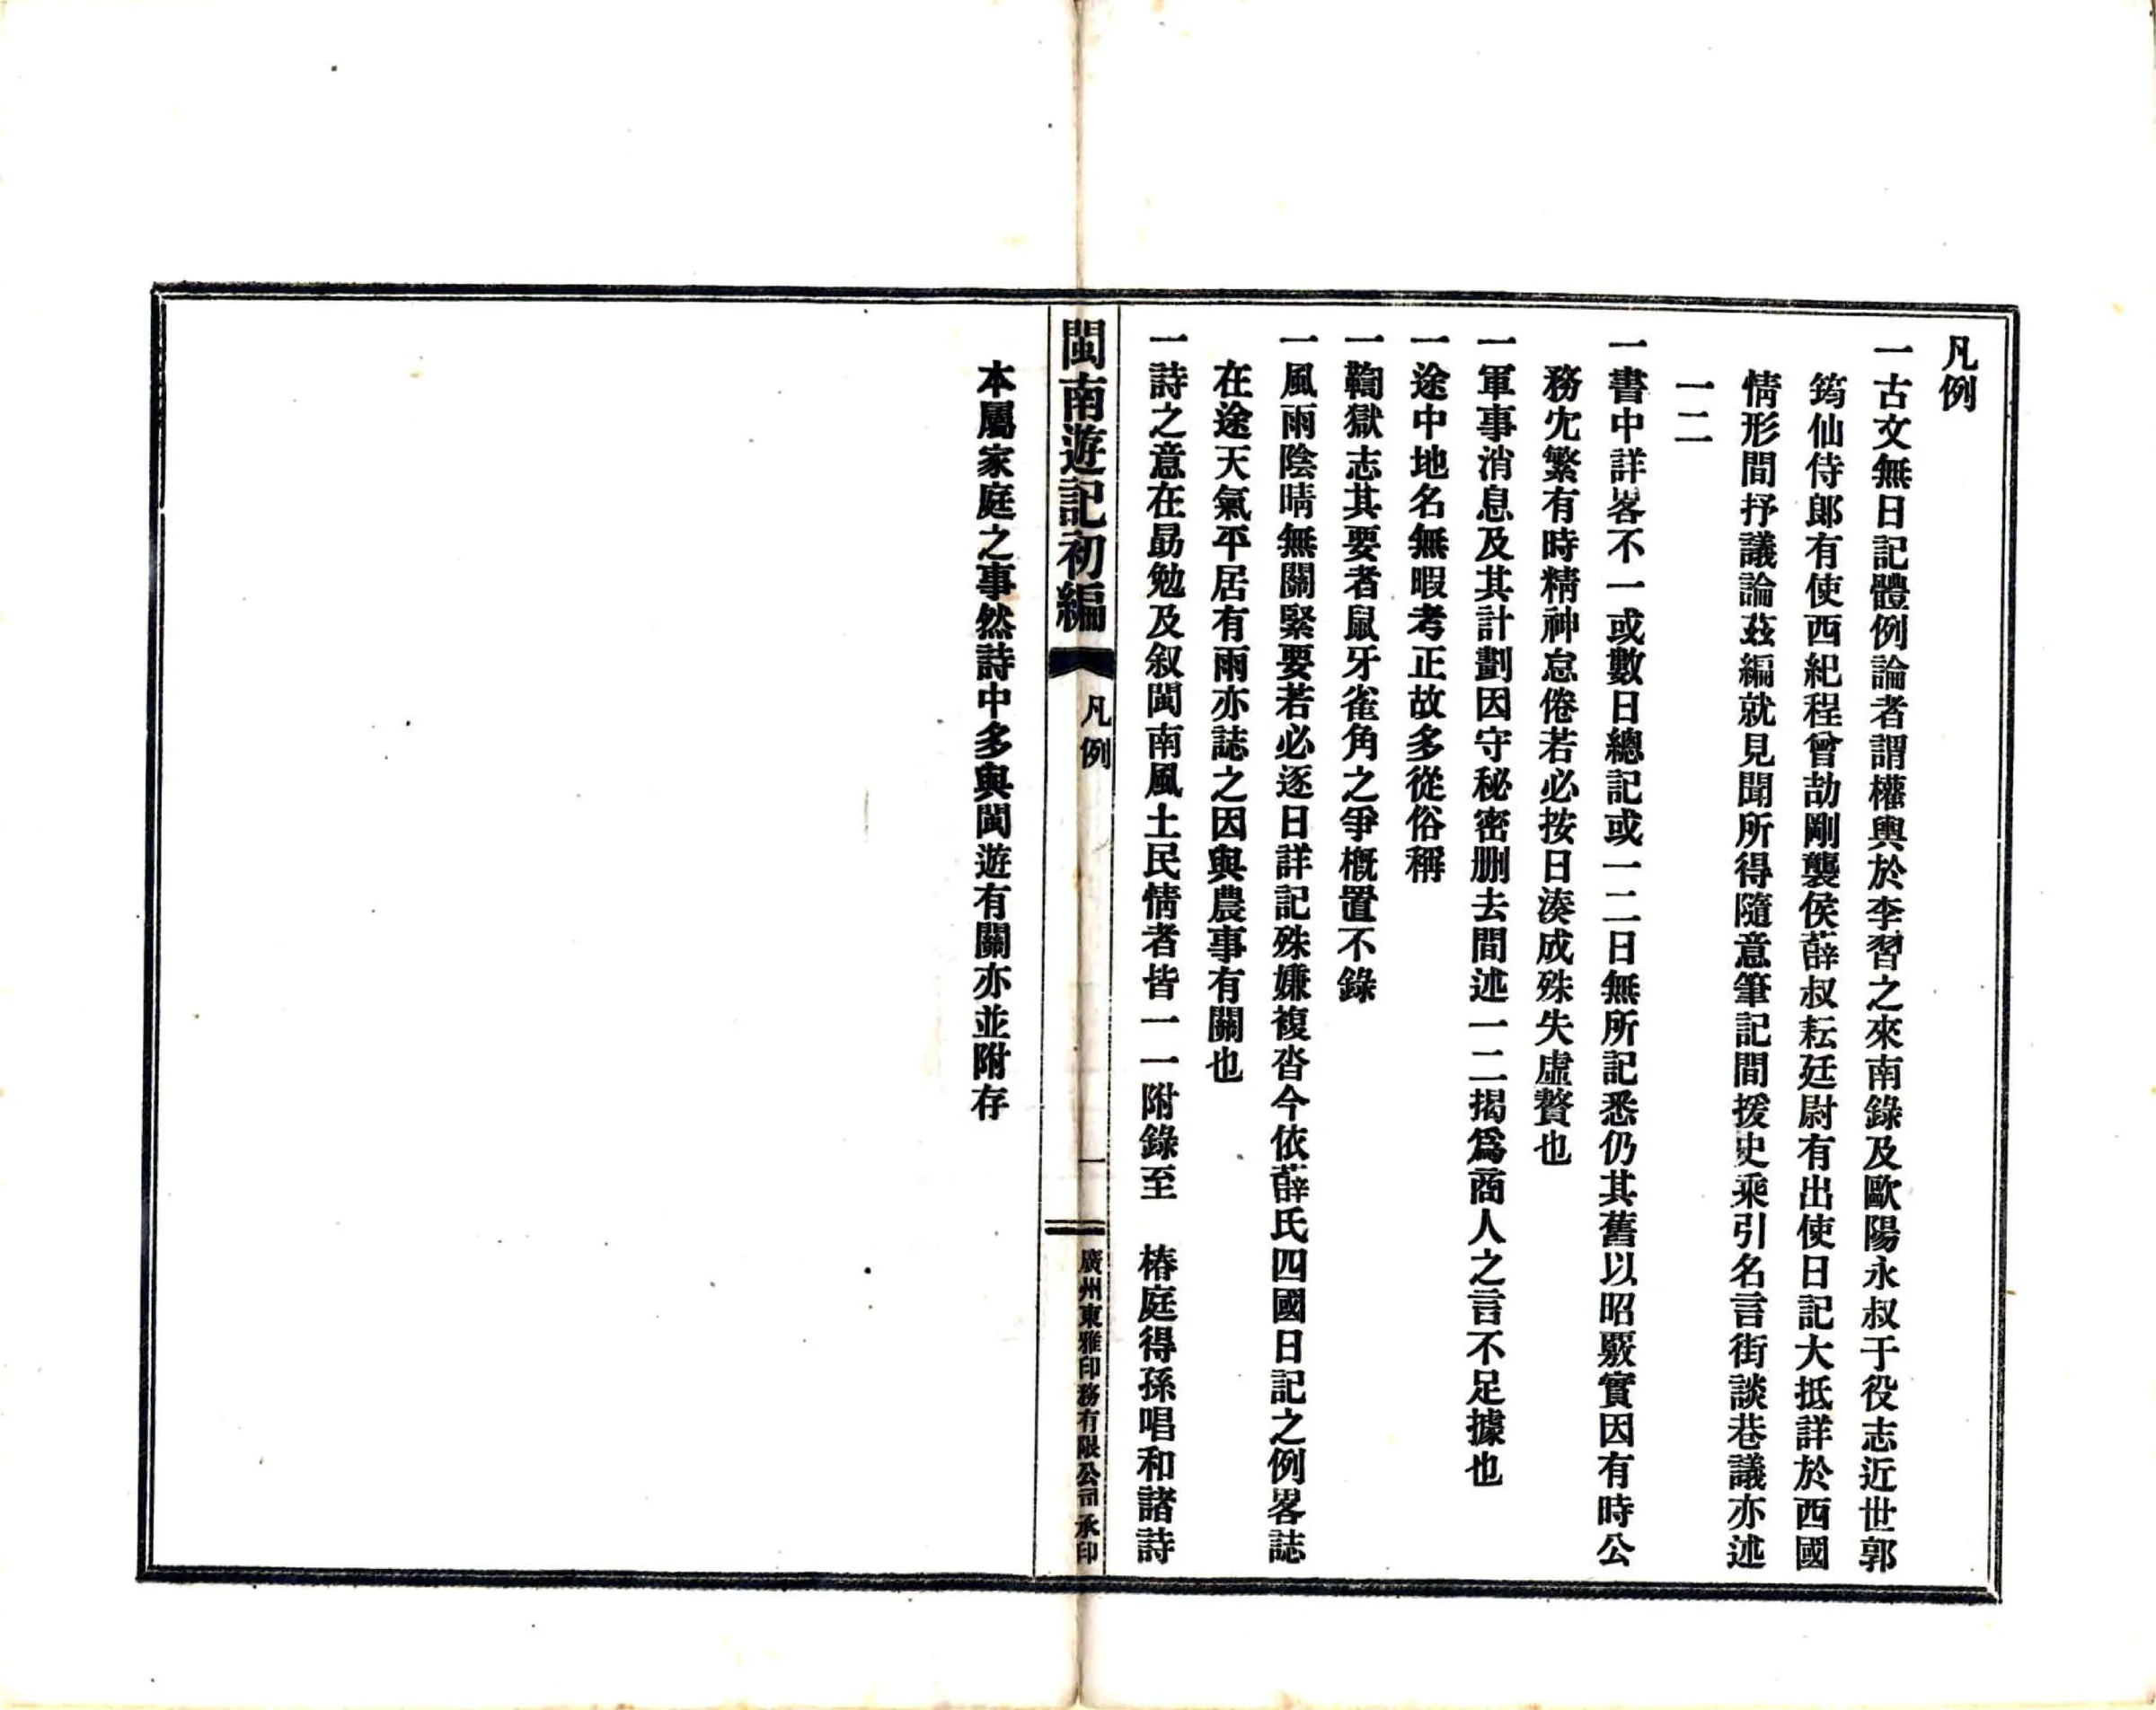 凡例
一古文無日記體例論者謂權輿於李習之來南錄及歐陽永叔于役志近世郭
筠仙侍郎有使西紀程曾劼剛襲侯薛叔耘廷尉有出使日記大抵詳於西國
情形間抒議論茲編就見聞所得隨意筆記間援史乘引名言街談巷議亦述
一二
一書中詳畧不一或數日總記或一二日無所記悉仍其舊以昭覈實因有時公
務冗繁有時精神怠倦若必按日湊成殊失虛贅也
一軍事消息及其計劃因守秘密刪去間述一二揭爲商人之言不足據也
一途中地名無暇考正故多從俗稱
一鞫獄志其要者鼠牙雀角之爭概置不錄
一風雨陰晴無關緊要若必逐日詳記殊嫌複沓今依薛氏四國日記之例畧誌
在途天氣平居有雨亦誌之因與農事有關也
一詩之意在勗勉及叙閩南風土民情者皆一一附錄至 椿庭得孫唱和諸詩
閩南遊記初編 凡例 一 廣州東雅印務有限公司承印
本屬家庭之事然詩中多與閩遊有關亦並附存